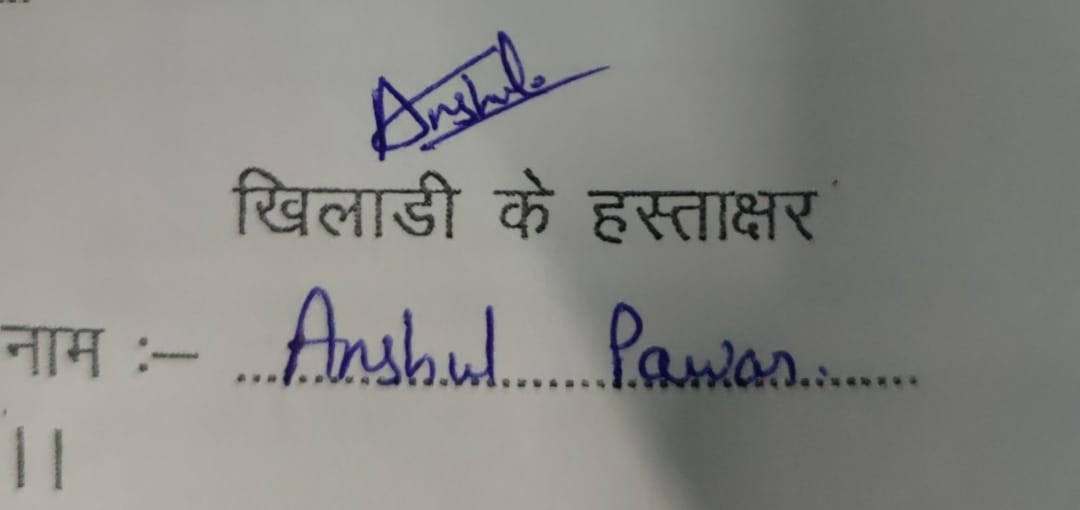 Anshul
खिलाडी के हस्ताक्षर
नाम :– ...Anshul.......Pawar.........
।।